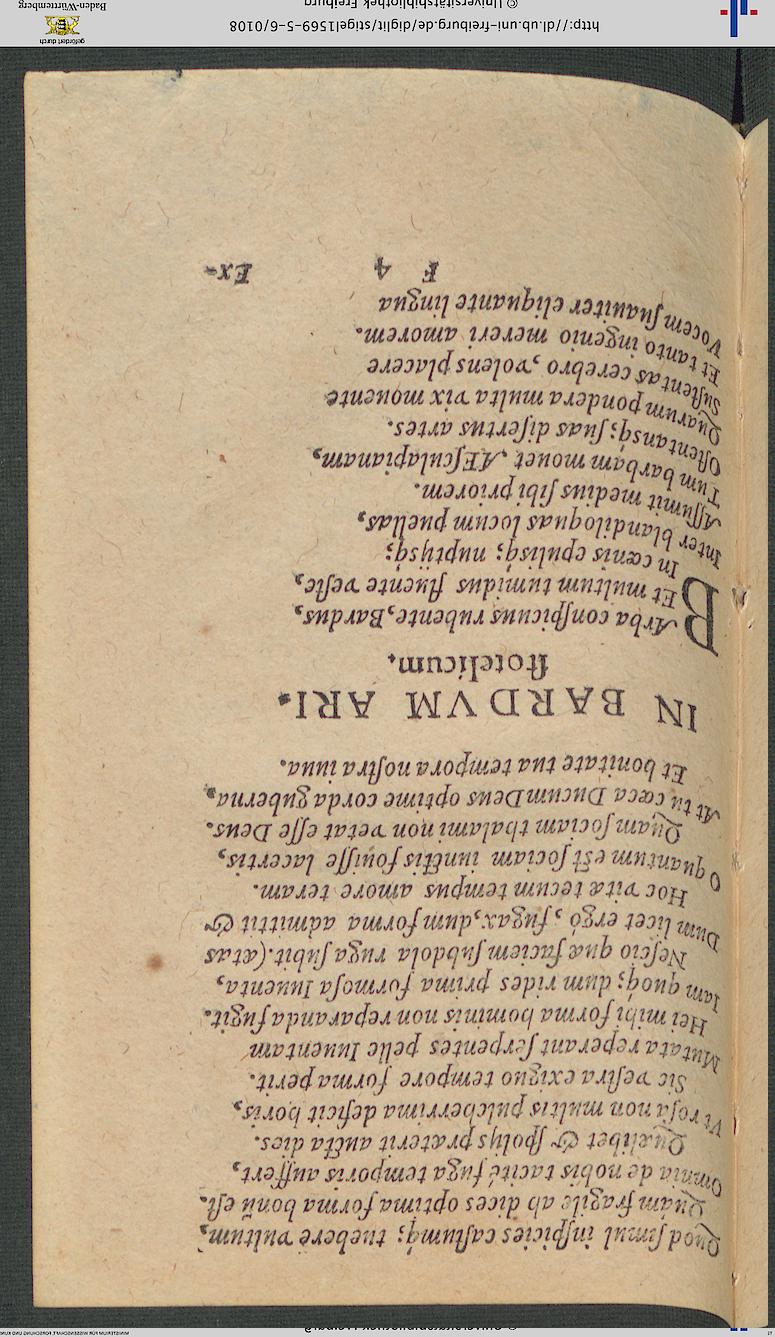 Quod simul inspicies castumq; tuebere vultum,
Quàm fragile ab dices optima forma bonũ est.
Omnia de nobis tacitè fuga temporis auffert,
Quælibet & spolijs præterit aucta dies.
Vt rosa non multis pulcherrima deficit horis,
Sic vestra exiguo tempore forma perit.
Mutata reperant serpentes pelle Iuuentam
Hei mihi forma hominis non reparanda fugit.
Iam quoq; dum rides prima formosa Iuuenta,
Nescio quæ faciem subdola ruga subit. (ætas
Dum licet ergò, fugax, dum forma admittit &
Hoc vitæ tecum tempus amore teram.
O quantum est sociam iunctis fouisse lacertis,
Quam sociam thalami non vetat esse Deus.
At tu cœca Ducum Deus optime corda guberna,
Et bonitate tua tempora nostra iuua.
IN BARDVM ARI-
stotelicum.
BArba conspicuus rubente, Bardus,
Et multum tumidus fluente veste,
In cœnis epulisq; nuptijsq;
Inter blandiloquas locum puellas,
Assumit medius sibi priorem.
Tum barbam mouet, Æsculapianam,
Ostentansq; suas disertus artes.
Quarum pondera multa vix monente
Sustentas cerebro, volens placere
Et tanto ingenio mereri amorem.
Vocem suauiter eliquante lingua
F 4 Ex-
http://dl.ub.uni-freiburg.de/diglit/stigel1569-5-6/0108
© Universitätsbibliothek Freiburg
gefördert durch
Baden-Württemberg